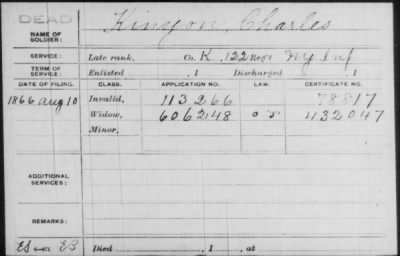 DEAD
NAME OF SOLDIER: Kinyon, Charles
SERVICE: Late rank, Co. K, 122 Reg't NY Inf
TERM OF SERVICE: Enlisted , 1 Discharged , 1
DATE OF FILING. CLASS. APPLICATION NO. LAW. CERTIFICATE NO.
1866 Aug 10 Invalid, 113266 78817
Widow, 606248 432047
Minor,
ADDITIONAL SERVICES:
REMARKS:
Died , 1 , at